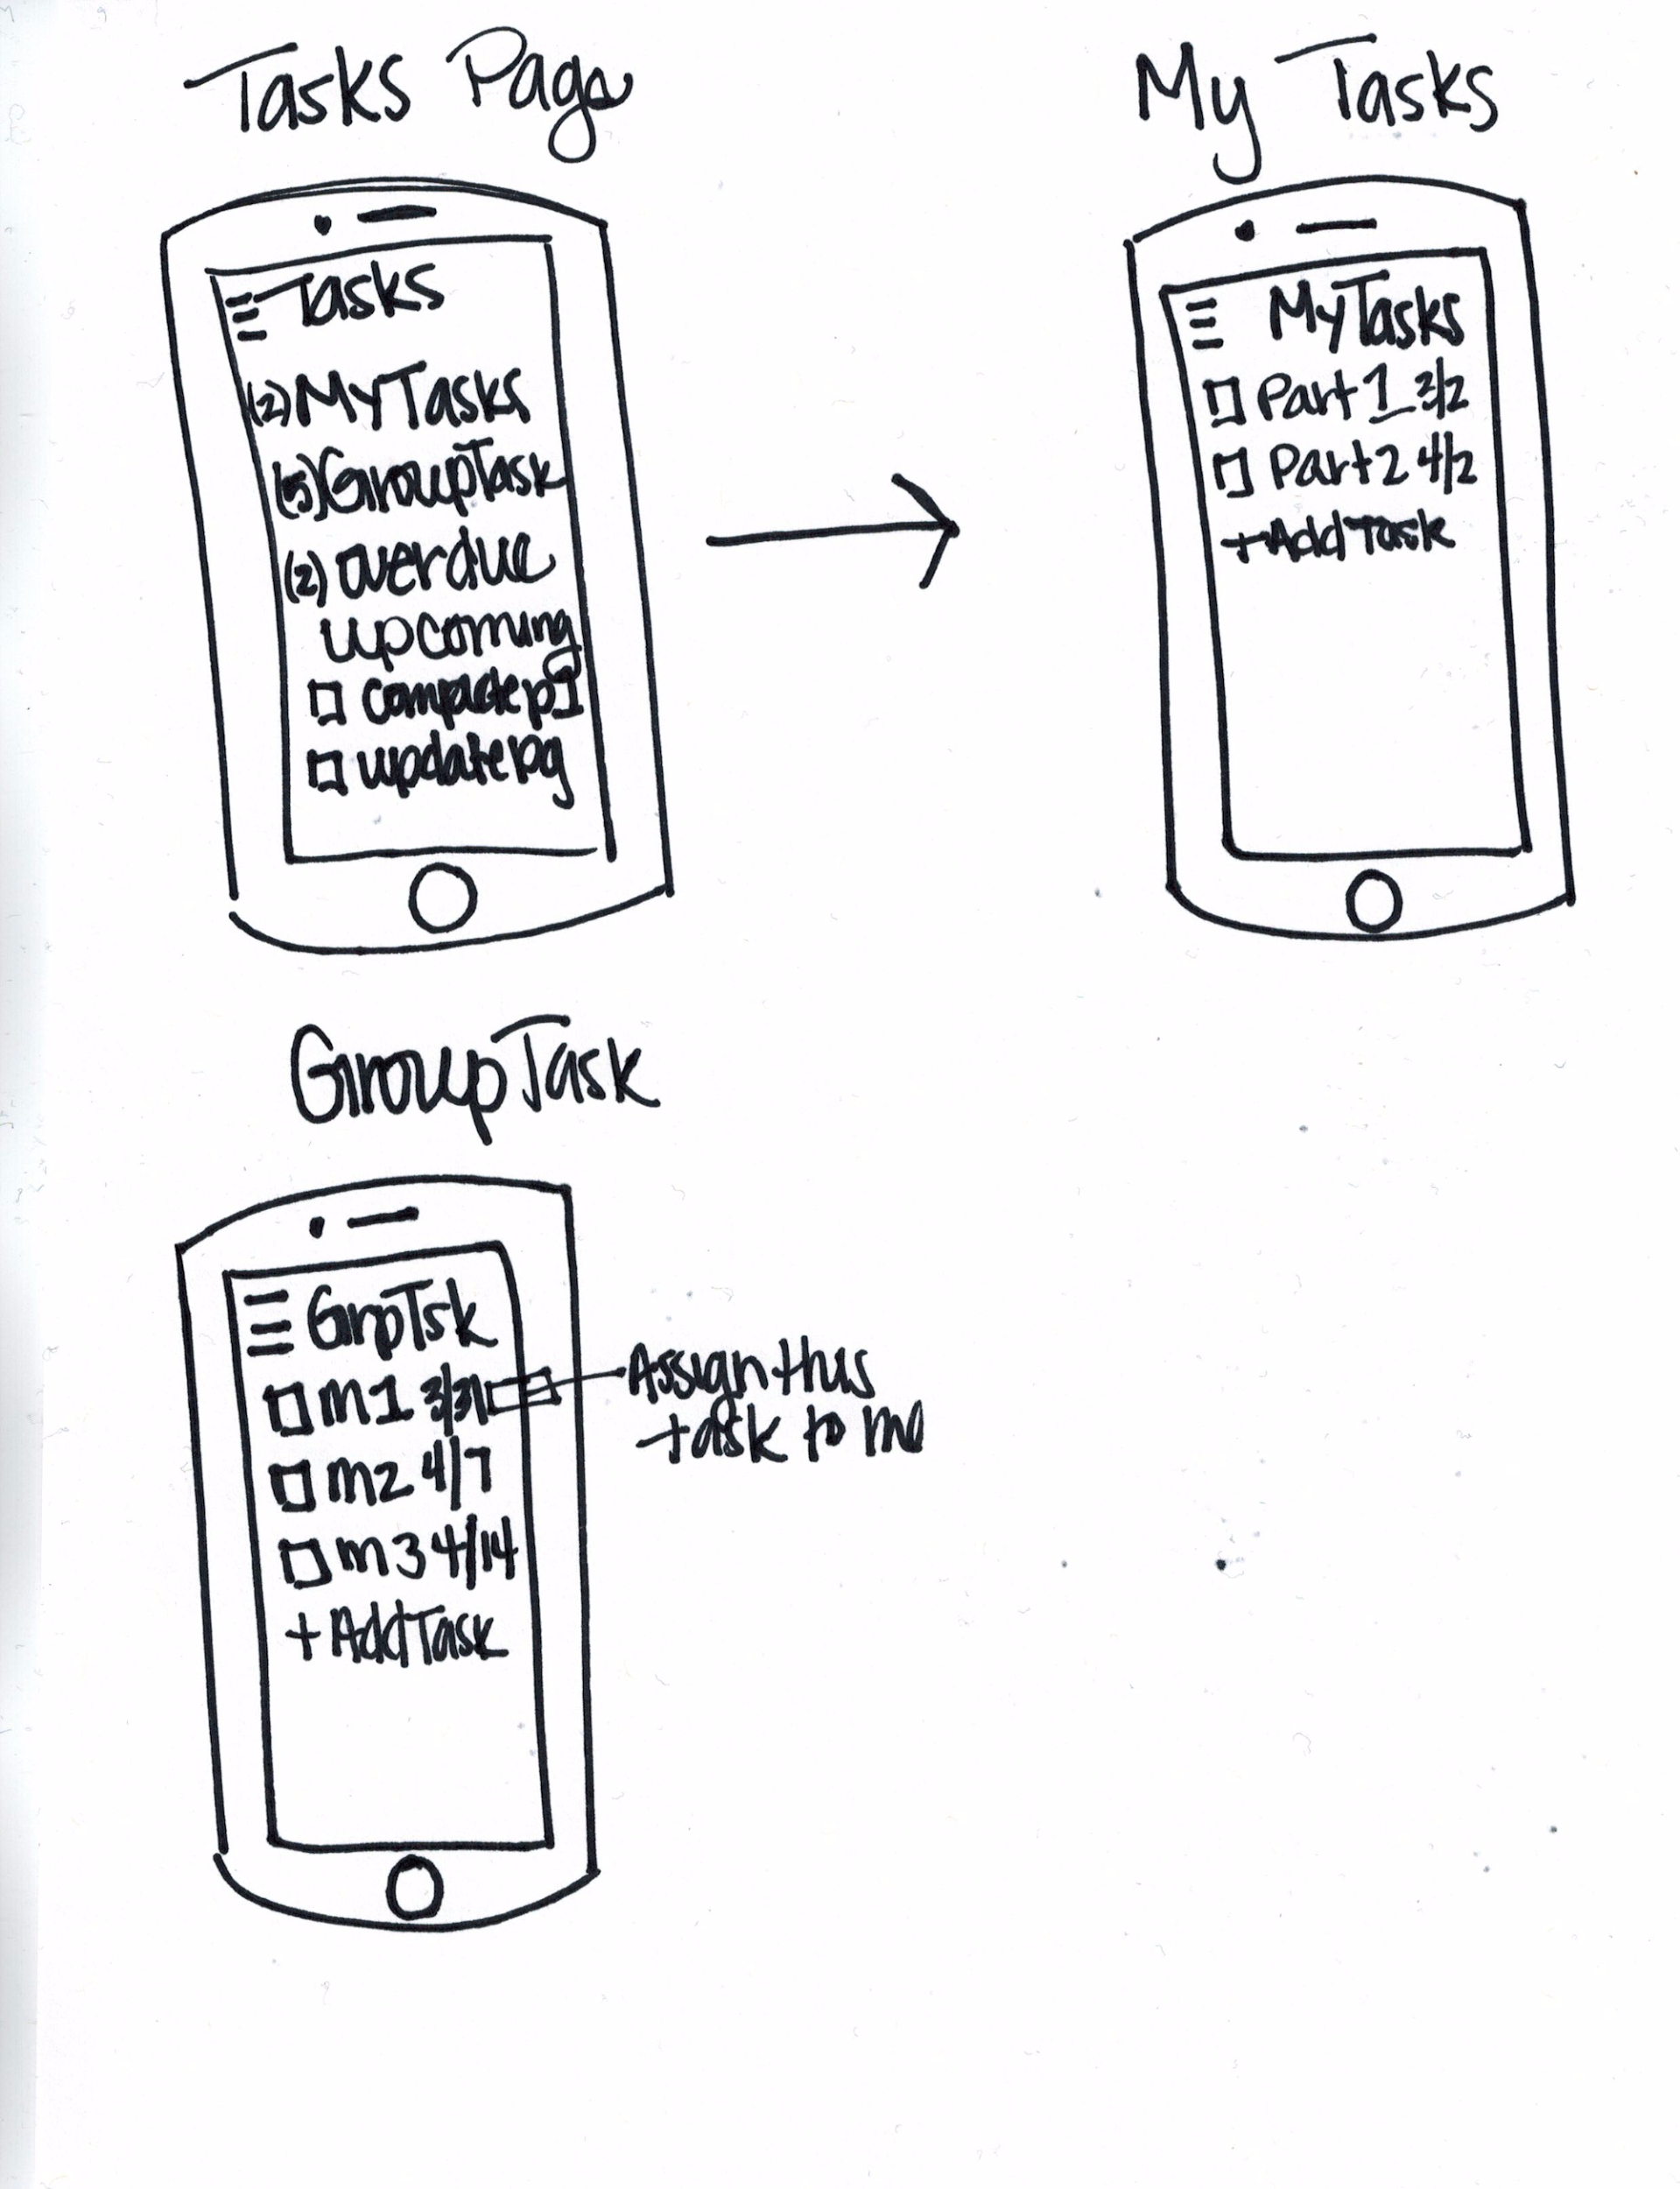 Tasks Page
Tasks
(2) My Tasks
(5) GroupTask
(2) overdue
upcoming
□ update pg
My Tasks
My Tasks
□ Part 1 3/2
□ Part 2 4/2
+Add Task
Group Task
GrpTsk
□ m1 3/31
□ m2 4/7
□ m3 4/14
+ Add Task
Assign this
task to me